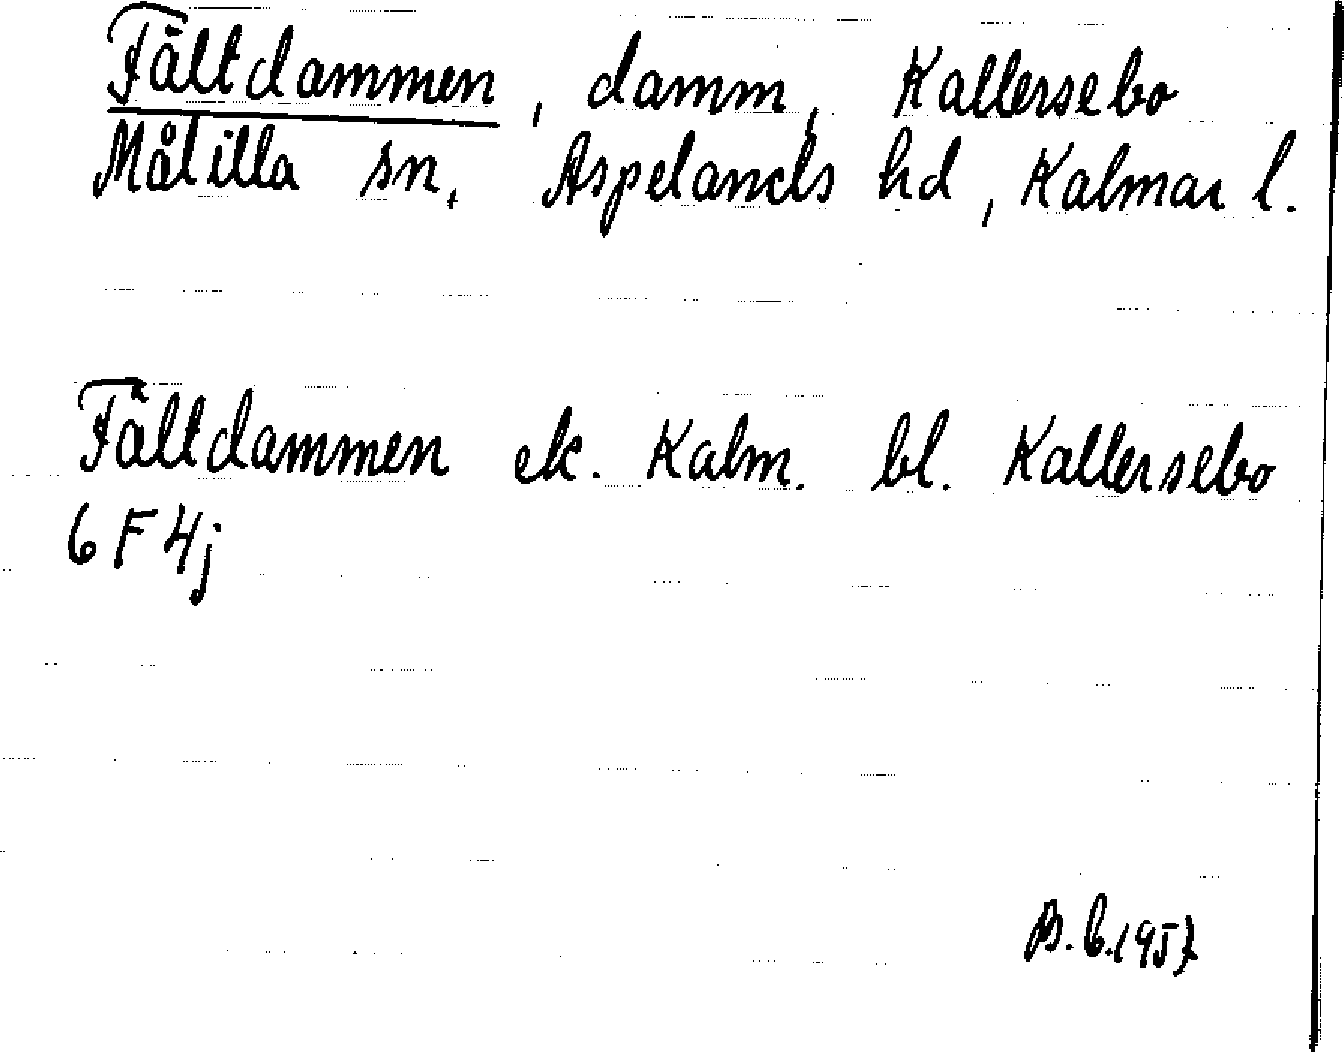 Fältdammen, damm, Kallersebo
Målilla sn, Aspelands hd, Kalmar l.
Fältdammen ek. Kalm. bl. Kallersebo
6 F 4j
B.b.1957